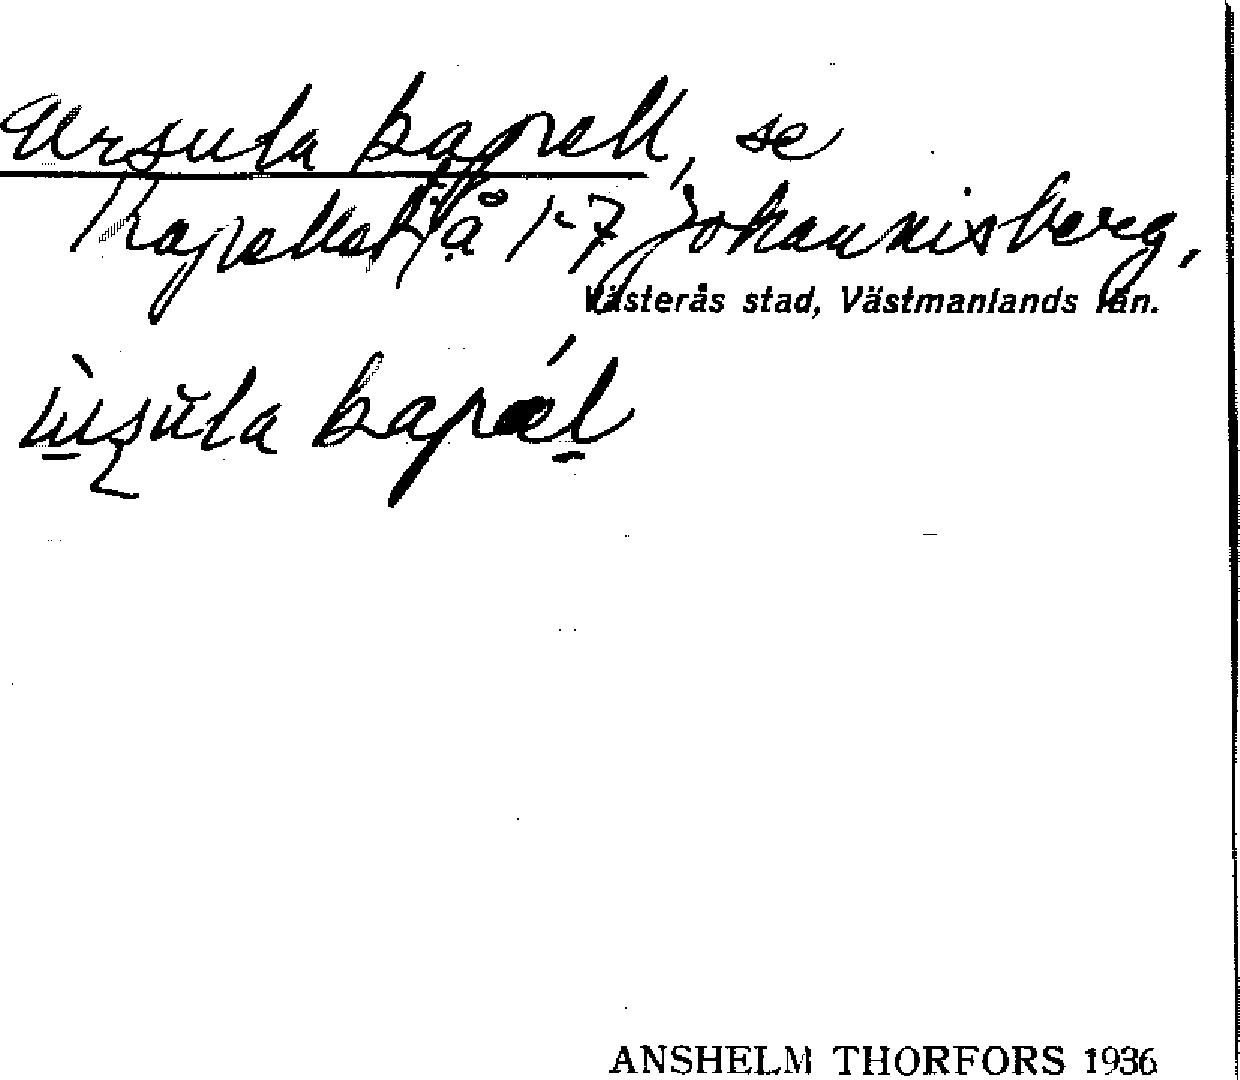 Ursula kapell, se
Kapellet på 1-7 Johannisberg,
Västerås stad, Västmanlands län.
ANSHELM THORFORS 1936